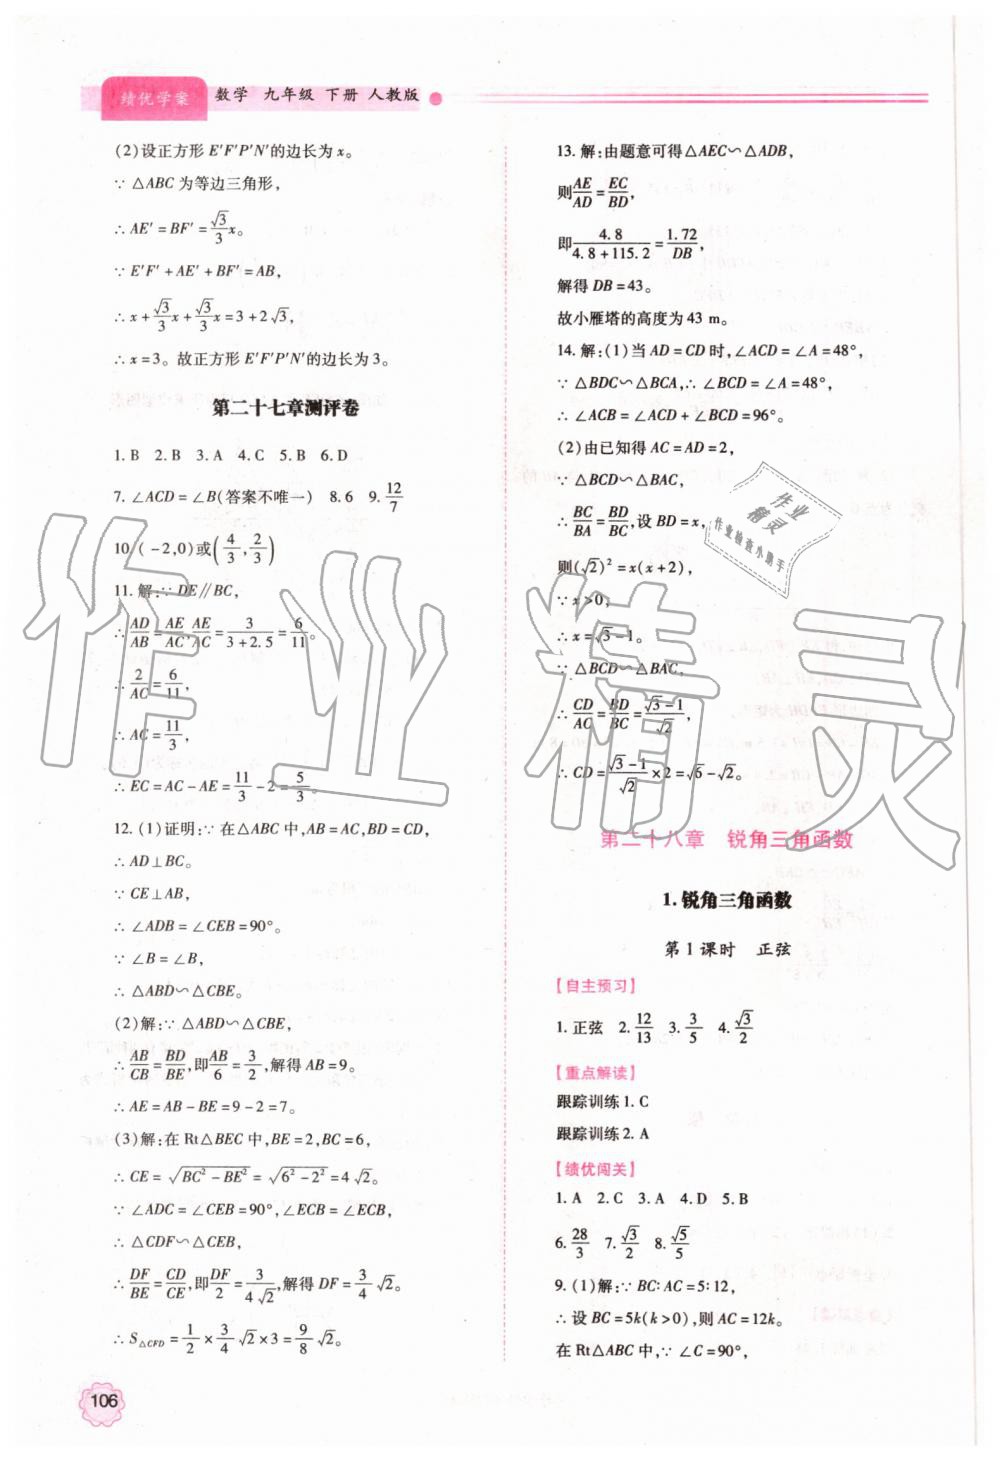 绩优学案
数学 九年级 下册 人教版
(2)设正方形 E′F′P′N′的边长为 x。
∵ △ABC 为等边三角形,
∴ AE′ = BF′ = √3/3 x。
∵ E′F′ + AE′ + BF′ = AB,
∴ x + √3/3 x + √3/3 x = 3 + 2√3,
∴ x = 3。故正方形 E′F′P′N′的边长为 3。
第二十七章测评卷
1. B 2. B 3. A 4. C 5. B 6. D
7. ∠ACD = ∠B(答案不唯一) 8. 6 9. 12/7
10. (-2,0)或(4/3, 2/3)
11. 解:∵ DE∥BC,
∴ AD/AB = AE/AC, AE/AC = 3/(3+2.5) = 6/11。
∴ 2/AC = 6/11,
∴ AC = 11/3,
∴ EC = AC - AE = 11/3 - 2 = 5/3。
12. (1)证明:∵ 在△ABC 中,AB = AC,BD = CD,
∴ AD⊥BC。
∵ CE⊥AB,
∴ ∠ADB = ∠CEB = 90°。
∵ ∠B = ∠B,
∴ △ABD∽△CBE。
(2)解:∵ △ABD∽△CBE,
∴ AB/CB = BD/BE,即 AB/6 = 3/2,解得 AB = 9。
∴ AE = AB - BE = 9 - 2 = 7。
(3)解:在 Rt△BEC 中,BE = 2,BC = 6,
∴ CE = √(BC² - BE²) = √(6² - 2²) = 4√2。
∵ ∠ADC = ∠CEB = 90°,∠ECB = ∠ECB,
∴ △CDF∽△CEB,
∴ DF/BE = CD/CE,即 DF/2 = 3/(4√2),解得 DF = 3/4 √2。
∴ S△CFD = 1/2 × 3/4 √2 × 3 = 9/8 √2。
106
13. 解:由题意可得△AEC∽△ADB,
则 AE/AD = EC/BD,
即 4.8/(4.8+115.2) = 1.72/DB,
解得 DB = 43。
故小雁塔的高度为 43 m。
14. 解:(1)当 AD = CD 时,∠ACD = ∠A = 48°,
∵ △BDC∽△BCA,∴ ∠BCD = ∠A = 48°,
∴ ∠ACB = ∠ACD + ∠BCD = 96°。
(2)由已知得 AC = AD = 2,
∵ △BCD∽△BAC,
∴ BC/BA = BD/BC,设 BD = x,
则(√2)² = x(x + 2),
∵ x > 0,
∴ x = √3 - 1。
∵ △BCD∽△BAC,
∴ CD/AC = BD/BC = (√3-1)/√2,
∴ CD = (√3-1)/√2 × 2 = √6 - √2。
第二十八章 锐角三角函数
1. 锐角三角函数
第 1 课时 正弦
【自主预习】
1. 正弦 2. 12/13 3. 3/5 4. √3/2
【重点解读】
跟踪训练 1. C
跟踪训练 2. A
【绩优闯关】
1. A 2. C 3. A 4. D 5. B
6. 28/3 7. √3/2 8. √5/5
9. (1)解:∵ BC∶AC = 5∶12,
∴ 设 BC = 5k(k > 0),则 AC = 12k。
在 Rt△ABC 中,∵ ∠C = 90°,
作业精灵
作业
精灵
作业检查小助手